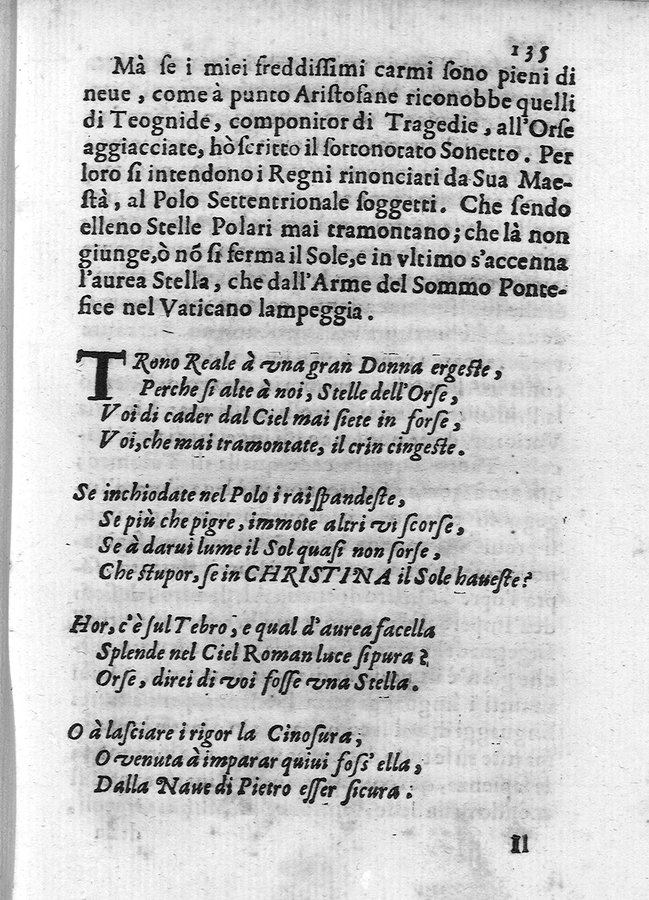 135
Mà se i miei freddiſſimi carmi ſono pieni di
neue, come à punto Ariſtofane riconobbe quelli
di Teognide, componitor di Tragedie, all'Orſe
aggiacciate, hò ſcritto il ſottonotato Sonetto. Per
loro ſi intendono i Regni rinonciati da Sua Mae-
ſtà, al Polo Settentrionale ſoggetti. Che ſendo
elleno Stelle Polari mai tramontano; che là non
giunge, ò nõ ſi ferma il Sole, e in vltimo s'accenna
l'aurea Stella, che dall'Arme del Sommo Ponte-
fice nel Vaticano lampeggia.
TRono Reale à vna gran Donna ergeſte,
Perche ſi alte à noi, Stelle dell'Orſe,
Voi di cader dal Ciel mai ſiete in forſe,
Voi, che mai tramontate, il crin cingeſte.
Se inchiodate nel Polo i rai ſpandeſte,
Se più che pigre, immote altri vi ſcorſe,
Se à darui lume il Sol quaſi non ſorſe,
Che ſtupor, ſe in CHRISTINA il Sole haueſte?
Hor, c'è ſul Tebro, e qual d'aurea facella
Splende nel Ciel Roman luce ſi pura?
Orſe, direi di voi foſſe vna Stella.
O à laſciare i rigor la Cinoſura,
O venuta à imparar quiui foſſ' ella,
Dalla Naue di Pietro eſſer ſicura.
Il